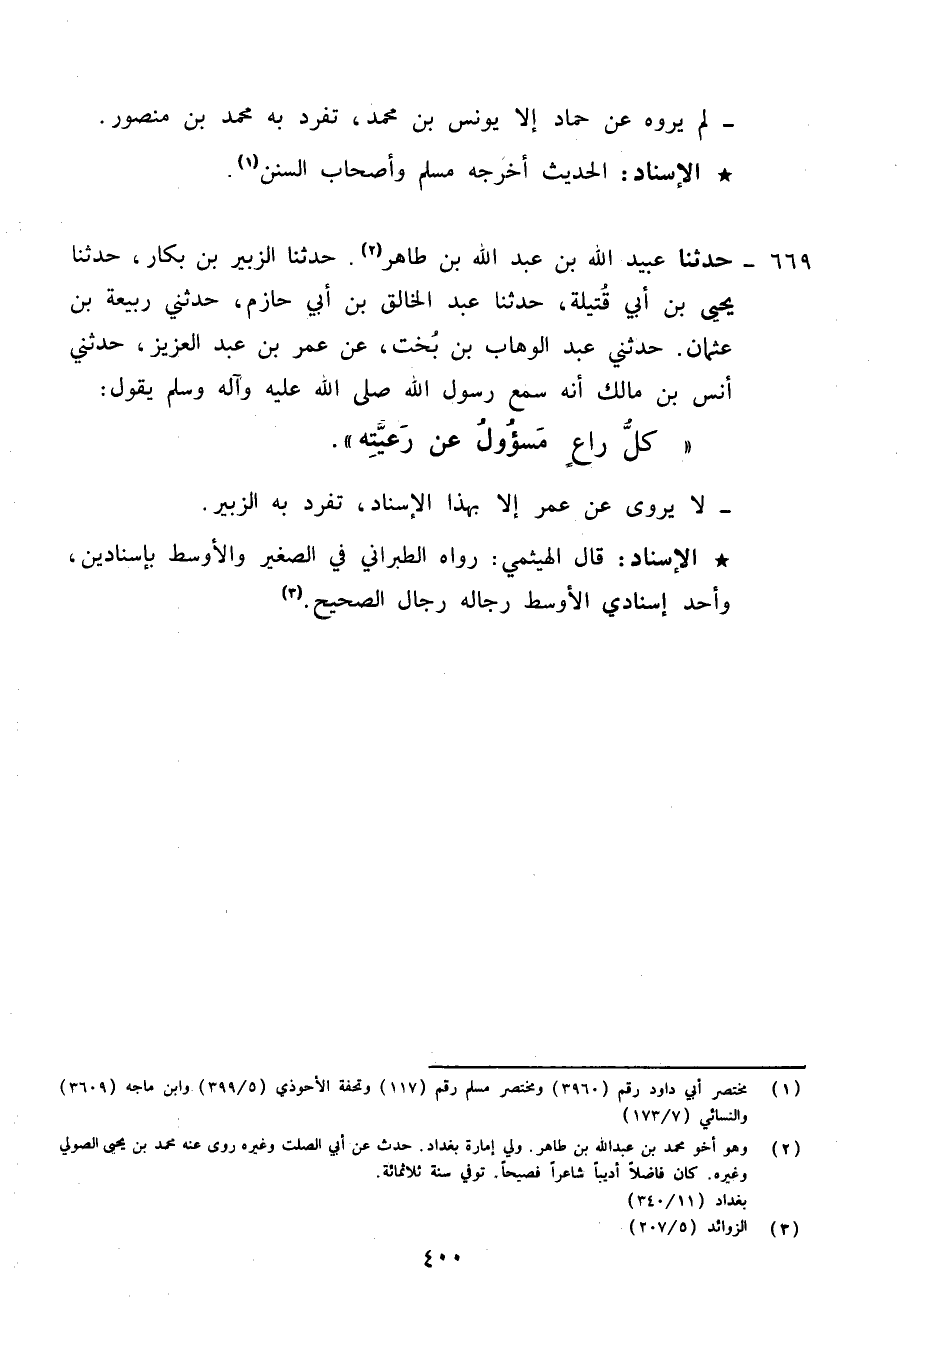 – لم يروه عن حماد إلا يونس بن محمد، تفرد به محمد بن منصور.
★ الإسناد: الحديث أخرجه مسلم وأصحاب السنن(١).
٦٦٩ – حدثنا عبيد الله بن عبد الله بن طاهر(٢). حدثنا الزبير بن بكار، حدثنا
يحيى بن أبي قُتيلة، حدثنا عبد الخالق بن أبي حازم، حدثني ربيعة بن
عثمان. حدثني عبد الوهاب بن بُخت، عن عمر بن عبد العزيز، حدثني
أنس بن مالك أنه سمع رسول الله صلى الله عليه وآله وسلم يقول:
« كلُّ راعٍ مَسؤُولٌ عن رَعيَّتِه ».
– لا يروى عن عمر إلا بهذا الإسناد، تفرد به الزبير.
★ الإسناد: قال الهيثمي: رواه الطبراني في الصغير والأوسط بإسنادين،
وأحد إسنادي الأوسط رجاله رجال الصحيح.(٣)
(١) مختصر أبي داود رقم (٣٩٦٠) ومختصر مسلم رقم (١١٧) وتحفة الأحوذي (٣٩٩/٥) وابن ماجه (٣٦٠٩)
والنسائي (١٧٣/٧)
(٢) وهو أخو محمد بن عبدالله بن طاهر. ولي إمارة بغداد. حدث عن أبي الصلت وغيره روى عنه محمد بن يحيى الصولي
وغيره. كان فاضلاً أديباً شاعراً فصيحاً. توفي سنة ثلاثمائة.
بغداد (٣٤٠/١١)
(٣) الزوائد (٢٠٧/٥)
٤٠٠